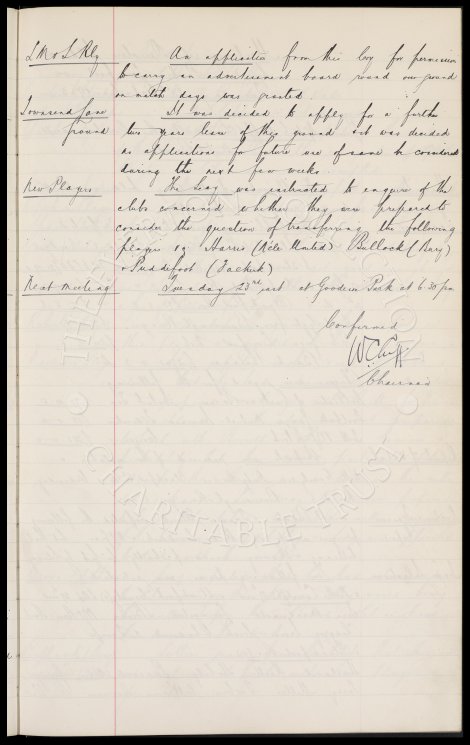 L M & S Rly An application from this Coy for permission
to carry an advertisement board round our ground
on match days was granted.
Townsend Lane It was decided to apply for a further
ground two years lease of this ground & it was decided
as applications for future use of same be considered
during the next few weeks.
New Players The Secy was instructed to enquire of the
clubs concerned whether they are prepared to
consider the question of transferring the following
players vz Harris (Ayle United) Bullock (Bury)
& Puddefoot (Falkirk)
Next Meeting Tuesday 23rd inst at Goodison Park at 6.30 pm
Confirmed
W C Cuff
Chairman
THE EVERTON COLLECTION
CHARITABLE TRUST